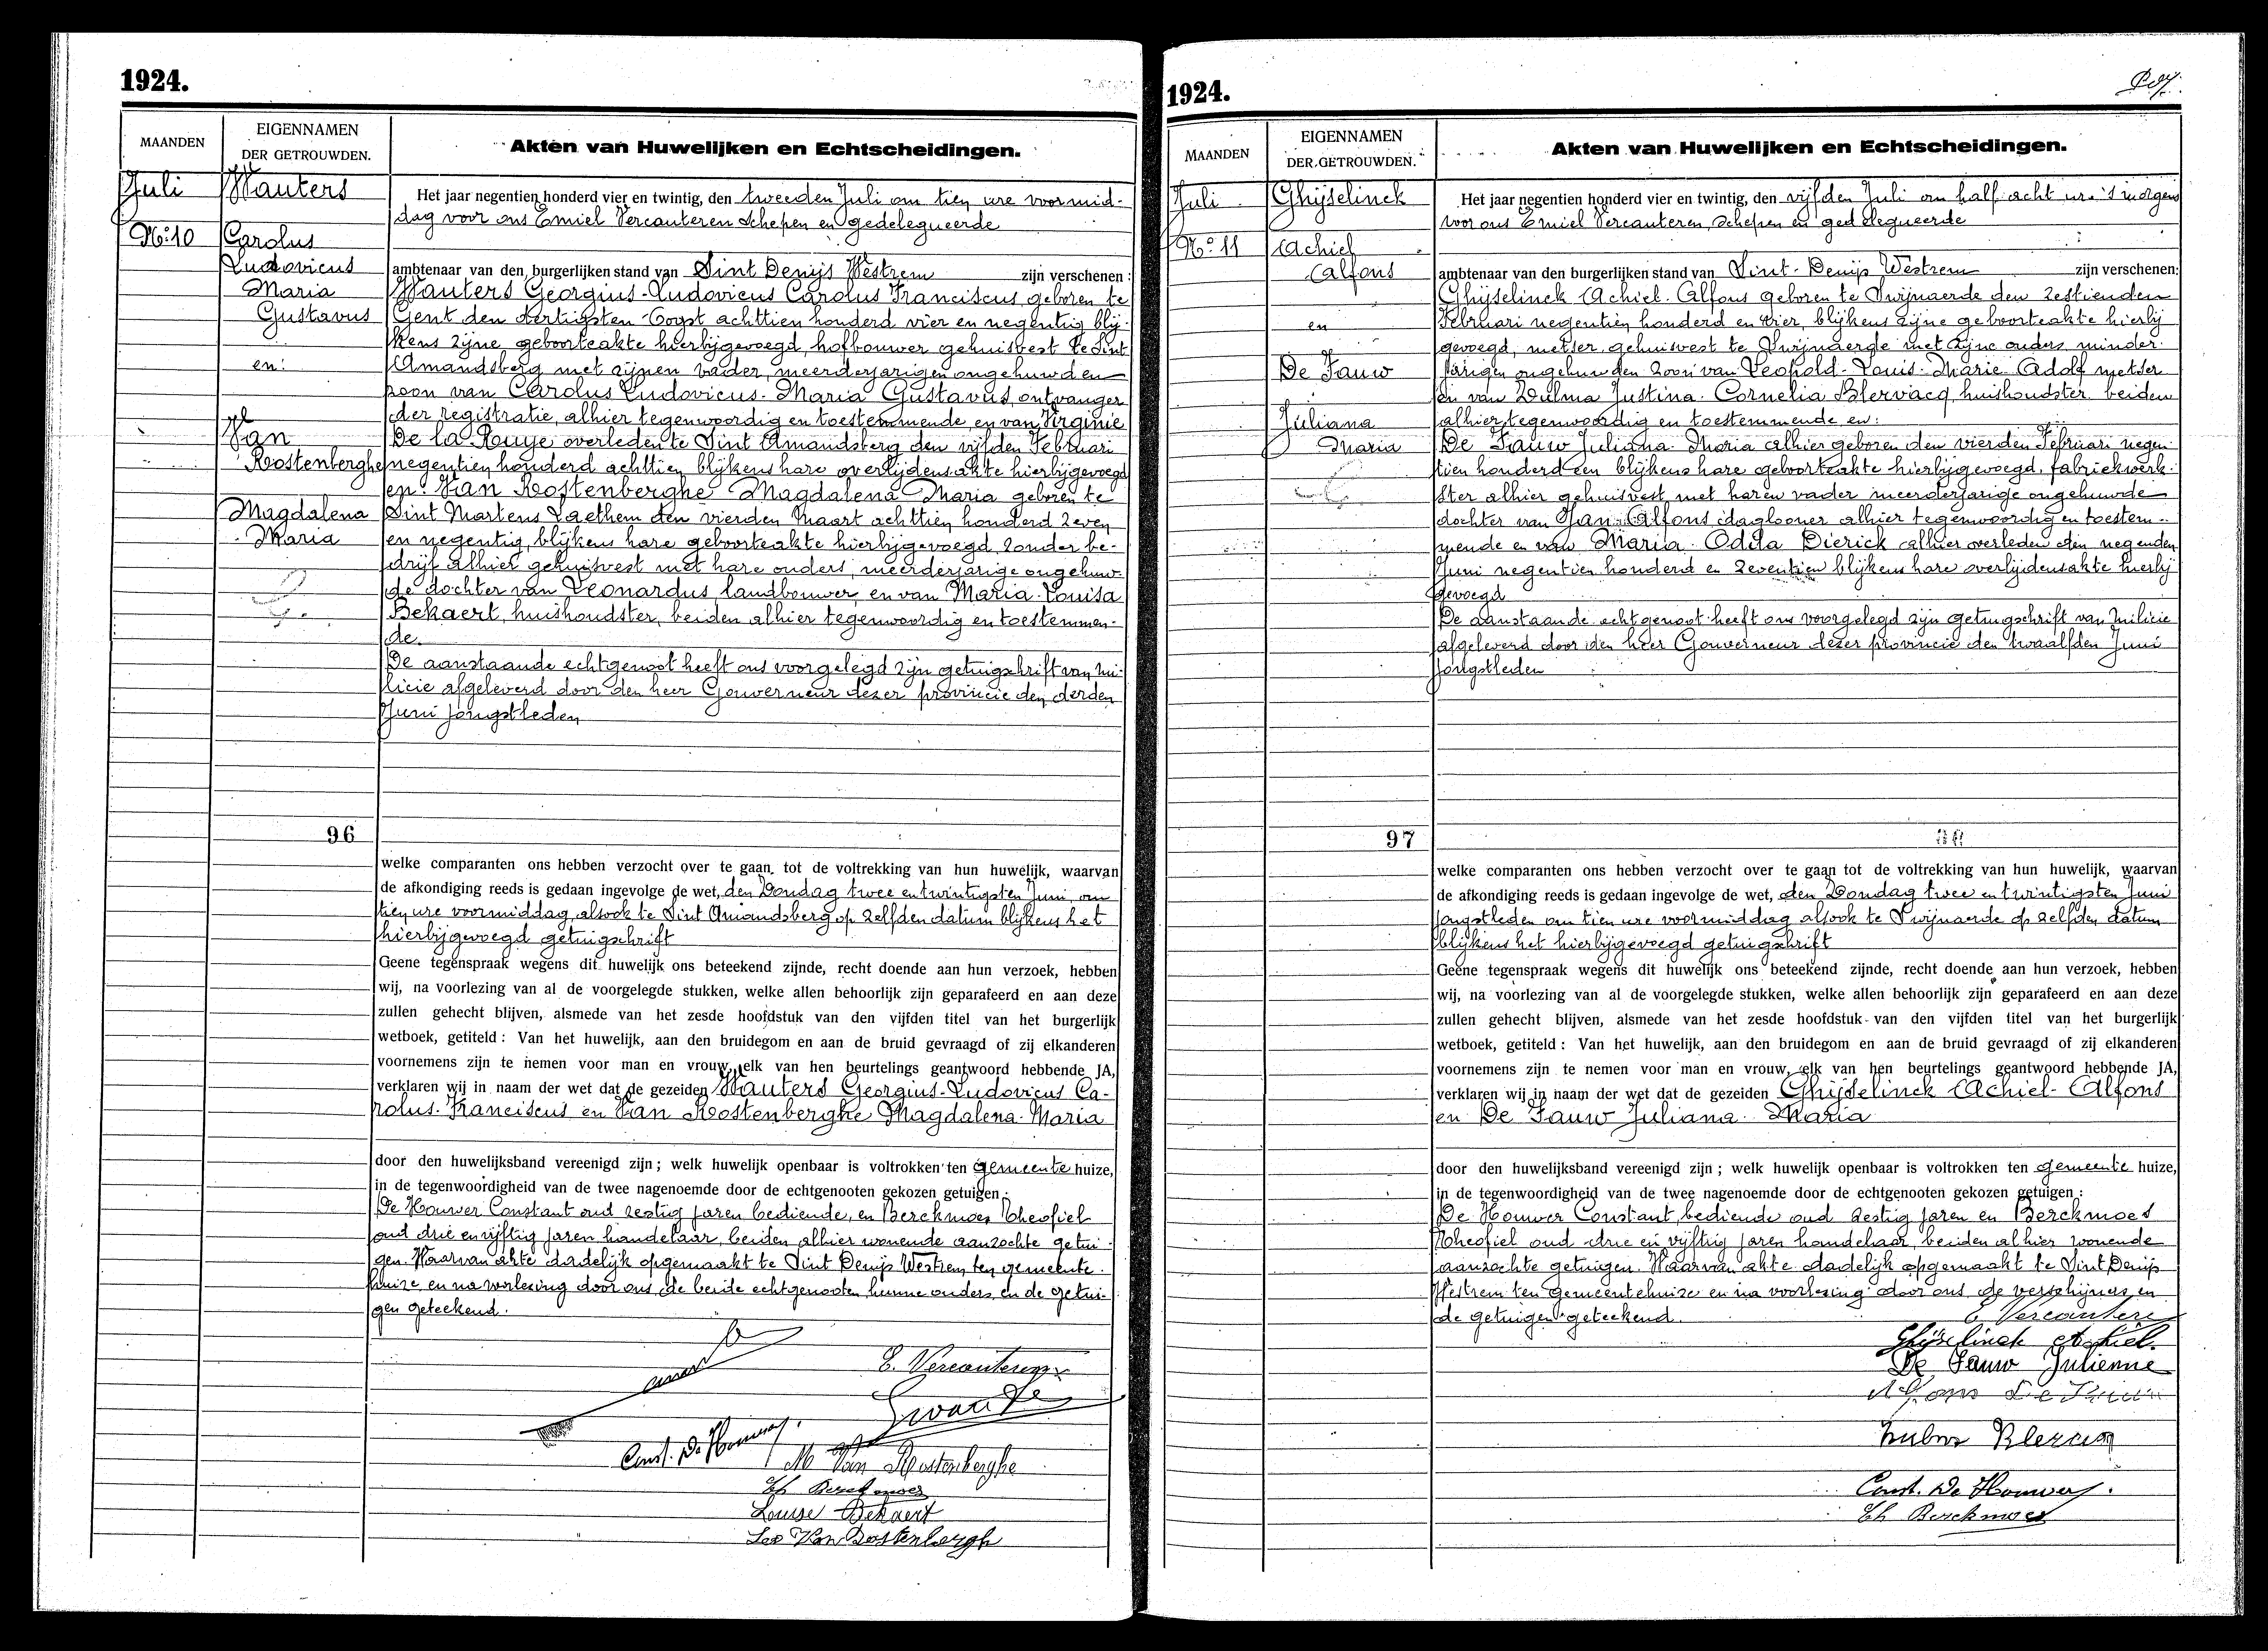 1924.
MAANDEN
EIGENNAMEN
DER GETROUWDEN.
Akten van Huwelijken en Echtscheidingen.
Juli
No 10
Wauters
Carolus
Ludovicus
Maria
Gustavus
en:
Van
Rostenberghe
Magdalena
Maria
Het jaar negentien honderd vier en twintig, den tweeden Juli om tien ure voormid-
dag voor ons Emiel Vercauteren schepen en gedelegueerde
ambtenaar van den burgerlijken stand van Sint Denijs Westrem zijn verschenen:
Wauters Georgius-Ludovicus Carolus Franciscus geboren te
Gent den dertigsten Oogst achttien honderd vier en negentig blij-
kens zijne geboorteakte hierbijgevoegd, hofbouwer gehuisvest te Sint
Amandsberg met zijnen vader, meerderjarigen ongehuwden
zoon van Carolus Ludovicus-Maria Gustavus, ontvanger
der registratie, alhier tegenwoordig en toestemmende, en van Virginie
De la Ruye overleden te Sint Amandsberg den vijfden Februari
negentien honderd achttien blijkens hare overlijdensakte hierbijgevoegd
en: Van Rostenberghe Magdalena Maria geboren te
Sint Martens Laethem den vierden Maart achttien honderd zeven
en negentig, blijkens hare geboorteakte hierbijgevoegd, zonder be-
drijf alhier gehuisvest met hare ouders, meerderjarige ongehuw-
de dochter van Leonardus, landbouwer, en van Maria-Louisa
Bekaert, huishoudster, beiden alhier tegenwoordig en toestemmen-
de.
De aanstaande echtgenoot heeft ons voorgelegd zijn getuigschrift van mi-
licie afgeleverd door den heer Gouverneur dezer provincie den derden
Juni jongstleden
96
welke comparanten ons hebben verzocht over te gaan tot de voltrekking van hun huwelijk, waarvan
de afkondiging reeds is gedaan ingevolge de wet, den Zondag twee en twintigsten Juni, om
tien ure voormiddag, alsook te Sint Amandsberg op zelfden datum blijkens het
hierbijgevoegd getuigschrift
Geene tegenspraak wegens dit huwelijk ons beteekend zijnde, recht doende aan hun verzoek, hebben
wij, na voorlezing van al de voorgelegde stukken, welke allen behoorlijk zijn geparafeerd en aan deze
zullen gehecht blijven, alsmede van het zesde hoofdstuk van den vijfden titel van het burgerlijk
wetboek, getiteld: Van het huwelijk, aan den bruidegom en aan de bruid gevraagd of zij elkanderen
voornemens zijn te nemen voor man en vrouw, elk van hen beurtelings geantwoord hebbende JA,
verklaren wij in naam der wet dat de gezeiden Wauters Georgius-Ludovicus Ca-
rolus-Franciscus en Van Rostenberghe Magdalena-Maria
door den huwelijksband vereenigd zijn; welk huwelijk openbaar is voltrokken ten gemeente huize,
in de tegenwoordigheid van de twee nagenoemde door de echtgenooten gekozen getuigen:
De Houwer Constant oud zestig jaren bediende, en Berckmoes Theofiel
oud drie en vijftig jaren handelaar, beiden alhier wonende aanzochte getui-
gen. Waarvan akte dadelijk opgemaakt te Sint Denijs Westrem ten gemeente-
huize en na voorlezing door ons, de beide echtgenooten, hunne ouders en de getui-
gen geteekend.
E. Vercauteren
Const. De Houwer
M Van Rostenberghe
Th Berckmoes
Louise Bekaert
Leo Van Rostenbergh
1924.
MAANDEN
EIGENNAMEN
DER GETROUWDEN.
Akten van Huwelijken en Echtscheidingen.
Juli
No 11
Ghijselinck
Achiel
Alfons
en
De Fauw
Juliana
Maria
Het jaar negentien honderd vier en twintig, den vijfden Juli om half acht ure 's morgens
voor ons Emiel Vercauteren, schepen en gedelegueerde
ambtenaar van den burgerlijken stand van Sint-Denijs Westrem zijn verschenen:
Ghijselinck Achiel-Alfons geboren te Swijnaerde den zestienden
Februari negentien honderd en vier, blijkens zijne geboorteakte hierbij
gevoegd, metser, gehuisvest te Swijnaerde met zijne ouders, minder-
jarigen ongehuwden zoon van Leopold-Louis-Marie-Adolf metser
en van Zulma Justina-Cornelia Blervacq, huishoudster, beiden
alhier tegenwoordig en toestemmende en:
De Fauw Juliana-Maria alhier geboren den vierden Februari negen-
tien honderd een blijkens hare geboorteakte hierbijgevoegd, fabriekwerk-
ster alhier gehuisvest met haren vader meerderjarige ongehuwde
dochter van Jan-Alfons, daglooner alhier tegenwoordig en toestem-
mende en van Maria-Odila Dierick alhier overleden den negenden
Juni negentien honderd en zeventien blijkens hare overlijdensakte hierbij
gevoegd
De aanstaande echtgenoot heeft ons voorgelegd zijn getuigschrift van milicie
afgeleverd door den heer Gouverneur dezer provincie den twaalfden Juni
jongstleden
97
welke comparanten ons hebben verzocht over te gaan tot de voltrekking van hun huwelijk, waarvan
de afkondiging reeds is gedaan ingevolge de wet, den Zondag twee en twintigsten Juni
jongstleden om tien ure voormiddag alsook te Swijnaerde op zelfden datum
blijkens het hierbijgevoegd getuigschrift
Geene tegenspraak wegens dit huwelijk ons beteekend zijnde, recht doende aan hun verzoek, hebben
wij, na voorlezing van al de voorgelegde stukken, welke allen behoorlijk zijn geparafeerd en aan deze
zullen gehecht blijven, alsmede van het zesde hoofdstuk van den vijfden titel van het burgerlijk
wetboek, getiteld: Van het huwelijk, aan den bruidegom en aan de bruid gevraagd of zij elkanderen
voornemens zijn te nemen voor man en vrouw, elk van hen beurtelings geantwoord hebbende JA,
verklaren wij in naam der wet dat de gezeiden Ghijselinck Achiel-Alfons
en De Fauw Juliana-Maria
door den huwelijksband vereenigd zijn; welk huwelijk openbaar is voltrokken ten gemeente huize,
in de tegenwoordigheid van de twee nagenoemde door de echtgenooten gekozen getuigen:
De Houwer Constant, bediende oud zestig jaren en Berckmoes
Theofiel oud drie en vijftig jaren handelaar, beiden alhier wonende
aanzochte getuigen. Waarvan akte dadelijk opgemaakt te Sint Denijs
Westrem ten gemeentehuize en na voorlezing door ons, de verschijners en
de getuigen geteekend.
E Vercauteren
Ghijselinck Achiel.
De Fauw Julienne
Alfons De Fauw
Const. De Houwer.
Th Berckmoes